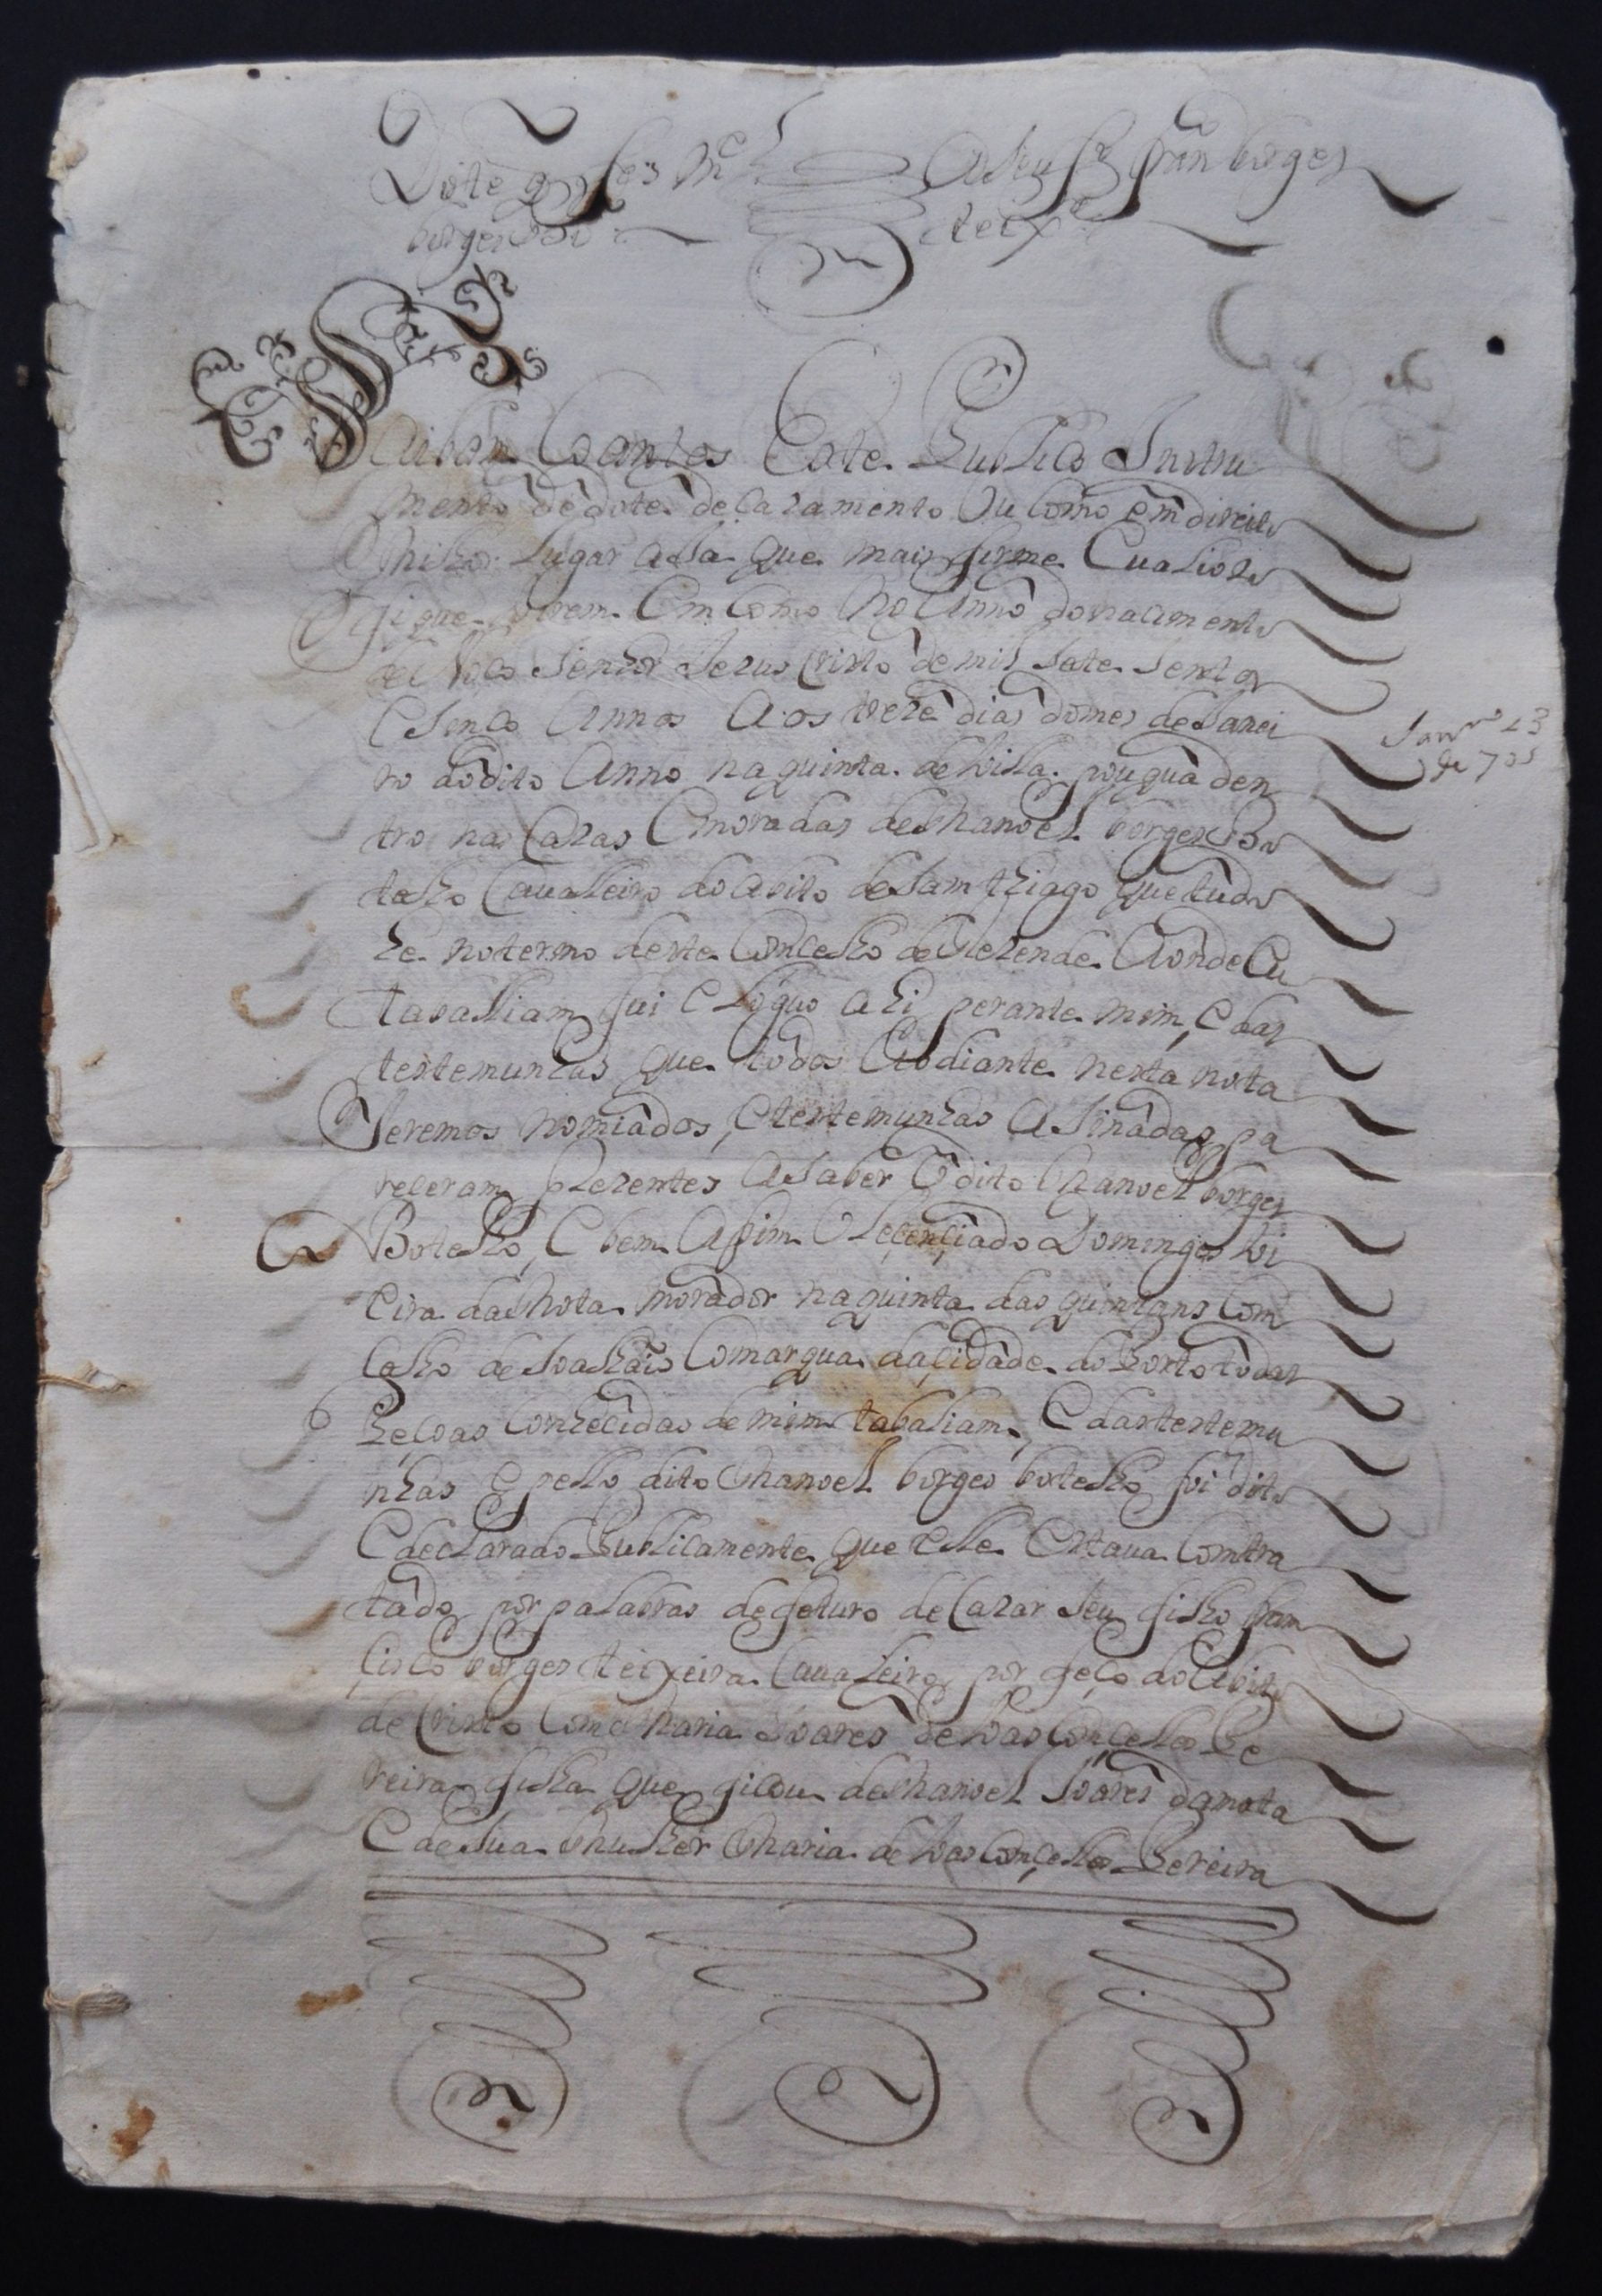 Dote q fes Mel A seu fo fran borges
borges Bo teixra
Saibam Coantos Este Publico Instru
mento de dote de Cazamento Ou Como em direito
milhor lugar aja que mais firme E valiozo
fique virem Em Como No Anno do nacimento
de Noso Senhor Jezus Cristo de mil sete sentos
E sinco Annos Aos treze dias do mes de Janei
ro do dito Anno na quinta de Vila pouqua den
tro nas Cazas E moradas de Manoel borges Bo
telho Cavaleiro do Abito de Sam Thiago que tudo
he no termo deste Comcelho de Rezende Aonde Eu
Tabaliam fui E loguo ahi perante mim, E das
testemunhas que todos Ao diante nesta nota
Seremos nomiados, E testemunhas Asinadas pa
receram Prezentes A saber O dito Manoel borges
Botelho, E bem Asim O lecenciado Domingos Vi
eira da Mota morador na quinta das quintans Com
Celho de Soalhais Comarqua da cidade do Porto todas
Pesoas Conhecidas de mim tabaliam, E das testemu
nhas E pello dito Manoel borges botelho foi dito
E declarado Publicamente que elle Estava Comtra
tado por palabras de foturo de Cazar seu filho fram
cisco borges teixeira Cavaleiro profeço do Abito
de Cristo Com Maria Soares de Vasconcelos Pe
reira filha que ficou de Manoel Soares da mota
E de Sua Mulher Maria de Vasconcelos Pereira
Janro 13
de 705